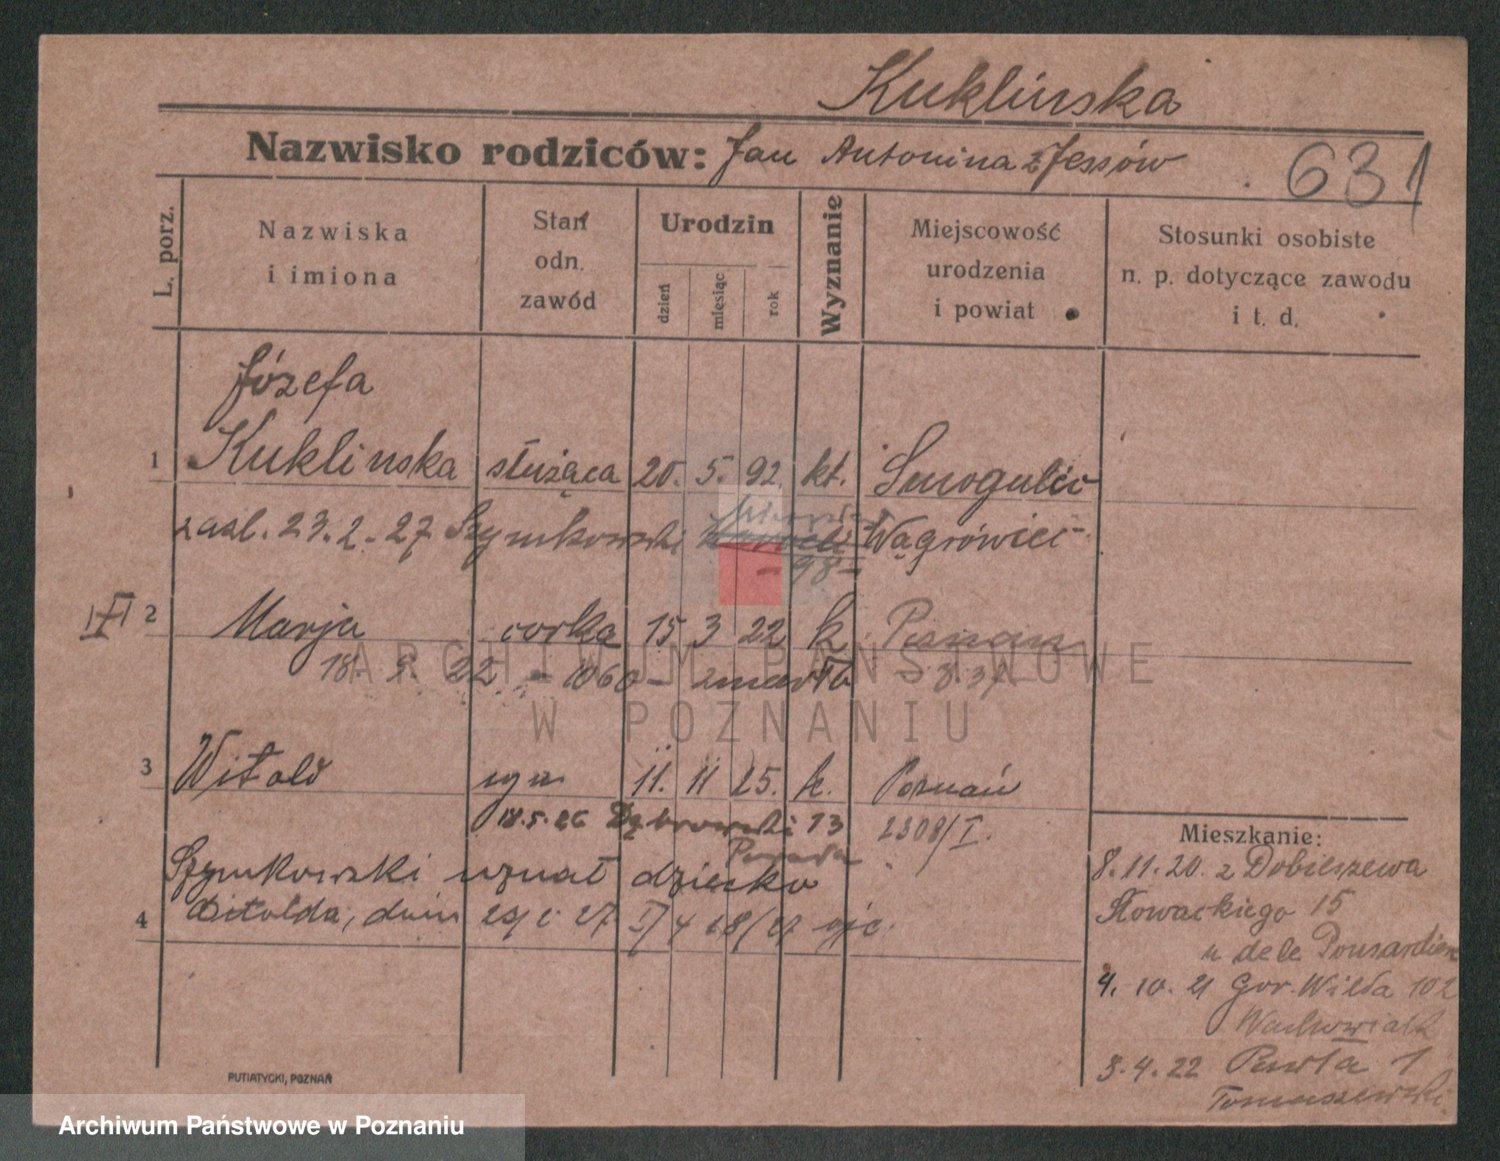 Kuklińska
Nazwisko rodziców: Jan Antonina z Jessów
631
L. porz.
Nazwiska
i imiona
Stan
odn.
zawód
Urodzin
dzień
miesiąc
rok
Wyznanie
Miejscowość
urodzenia
i powiat
Stosunki osobiste
n. p. dotyczące zawodu
i t. d.
Józefa
1 Kuklinska służąca 20. 5. 92 kt. Smogulec
zasl. 23.2.27 Szymkowski Wągrówiec
-98-
2 Marja corka 15 3 22 k Poznan
18. 9. 22 - 1060 - zmarła - 837
3 Witold syn 11. 11 25. k. Poznań
18.5.26 Dąbrowski 13 2308/I.
Szymkowski uznał dziecko
4 Witolda, dnia 27
Mieszkanie:
8.11.20. z Dobieszewa
Słowackiego 15
u dele
4. 10. 21 Gor. Wilda 102
Wachowiak
3.4.22 1
Tomaszewski
PUTIATYCKI, POZNAŃ
ARCHIWUM PAŃSTWOWE
W POZNANIU
Archiwum Państwowe w Poznaniu